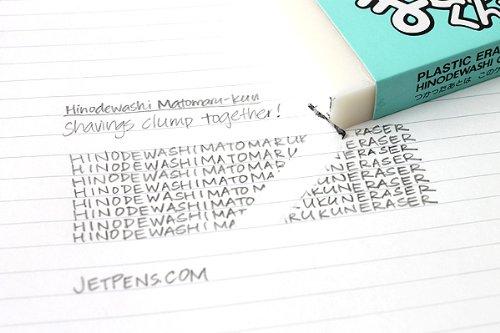 PLASTIC ERA
HINODEWASHI
つかったあとは この
Hinodewashi Matomaru-kun
Shavings clump together!
HINODEWASHIMATOMARUK ERASER
HINODEWASHIMATOMARU ERASER
HINODEWASHIMATOMAR ERASER
HINODEWASHIMATOM NERASER
HINODEWASHIMATO KUNERASER
HINODEWASHIMAT UKUNERASER
HINODEWASHIMA RUKUNERASER
JETPENS.COM